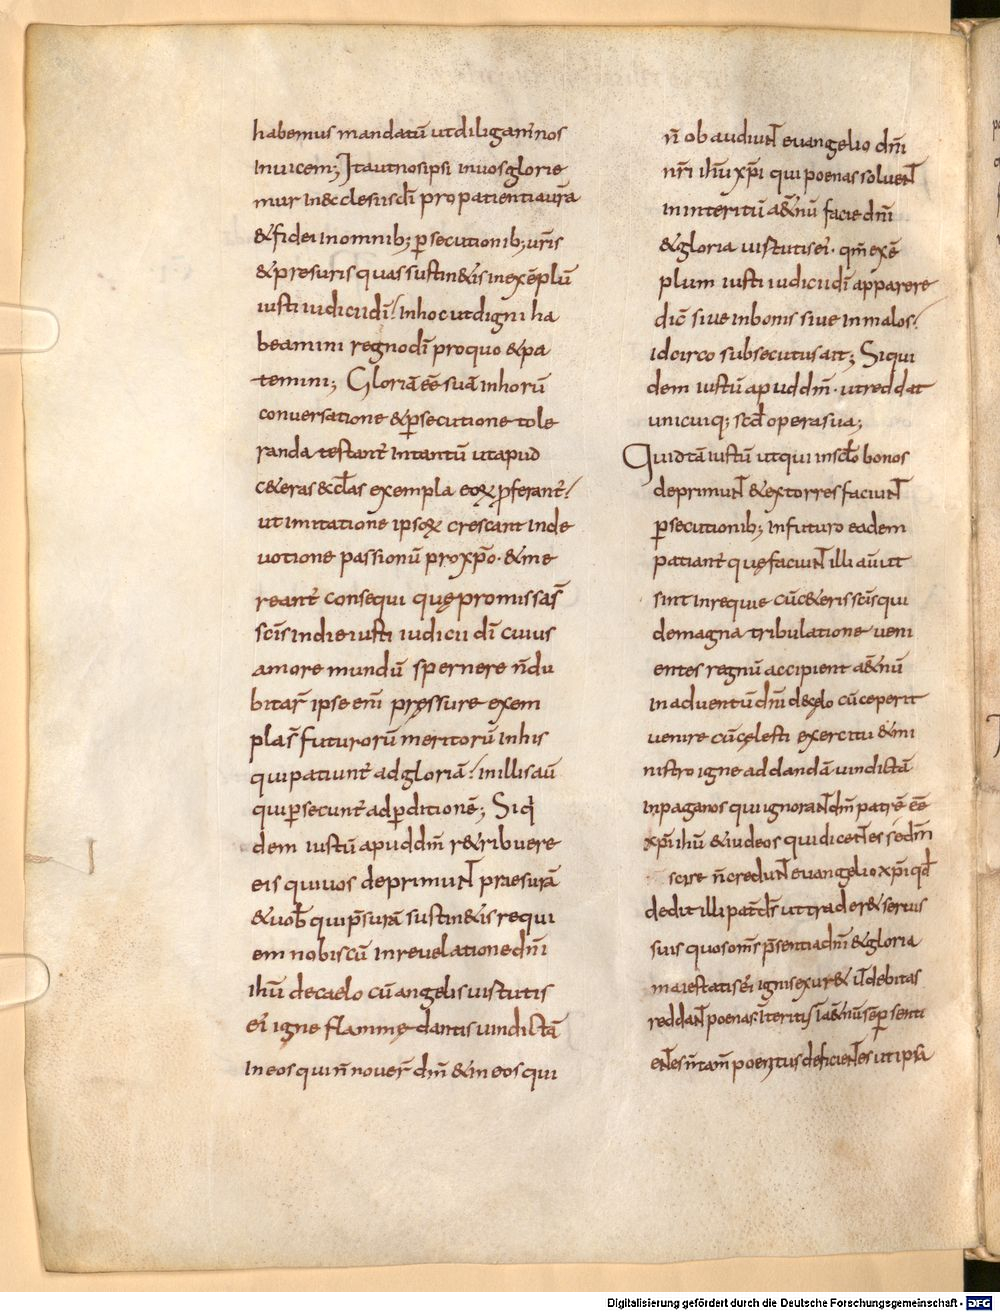 habemus mandatū ut diligam̄ nos
inuicem; Ita ut nos ipsi in uos glorie
mur in &cclesiis dī pro patientia ur̄a
& fidei in omnib; psecutionib; ur̄is
& presuris quas sustin&is in exēplū
iusti iudicii dī! in hoc ut digni ha
beamini regno dī pro quo & pa
temini; Gloriā eē suā in horū
conuersatione & psecutione tole
randa testant̄ in tantū ut apud
c&eras &cc̄las exempla eoꝝ pferant̄!
ut imitatione ipsoꝝ crescant in de
uotione passionū pro xp̄o. & me
reant̄ consequi quę promissas̄
sc̄is in die iusti iudicii dī cuius
amore mundū spernere n̄ du
bitar̄ ipse eni pręssure exem
plas̄ futurorū meritorū in his
qui patiunt̄ ad gloriā! in illis aū
qui psecunt̄ ad pditionē; Siq'
dem iustū apud dm̄ r&ribuere
eis qui uos deprimunt praesurā
& uob̄ qui p̄surā sustin&is requi
em nobiscū in reuelatione dn̄i
ihū de caelo cū angelis uistutis
ei' igne flammę dantis uindictā
in eos qui n̄ nouer̄ dm̄ & in eos qui
n̄ obaudiunt euangelio dn̄i
nr̄i ihū xp̄i qui poenas soluent
in interitū a&nū facie dn̄i
& gloria uistutis ei'. qm̄ exē
plum iusti iudicii dī apparere
dic̄ siue in bonis siue in malos!
idcirco subsecutus ait; Siqui
dem iustū apud dm̄. ut reddat
unicuiq; scd̄ opera sua;
Quid tā iustū ut qui in sc̄lo bonos
deprimunt & extorres faciunt
psecutionib; in futuro eadem
patiant̄ quę faciunt illi aū ut
sint in requie cū c&eris sc̄is qui
de magna tribulatione ueni
entes regnū accipient a&nū
in aduentū dn̄i de cęlo cū ceperit
uenire cū cęlesti exercitu & mi
nistro igne ad dandā uindictā
in paganos qui ignorant dm̄ patrē eē
xp̄i ihū & iudeos qui dicentes se dm̄
scire n̄ credunt euangelio xp̄i qd̄
dedit illi pat̄ ds̄ ut trader& seruis
suis quos om̄s p̄sentia dn̄i & gloria
maiestatis ei' ignis exur& ut debitas
reddant poenas. īteritus ī a&nū sēp senti
entes n̄ tam̄ poenitus deficientes ut ipsa